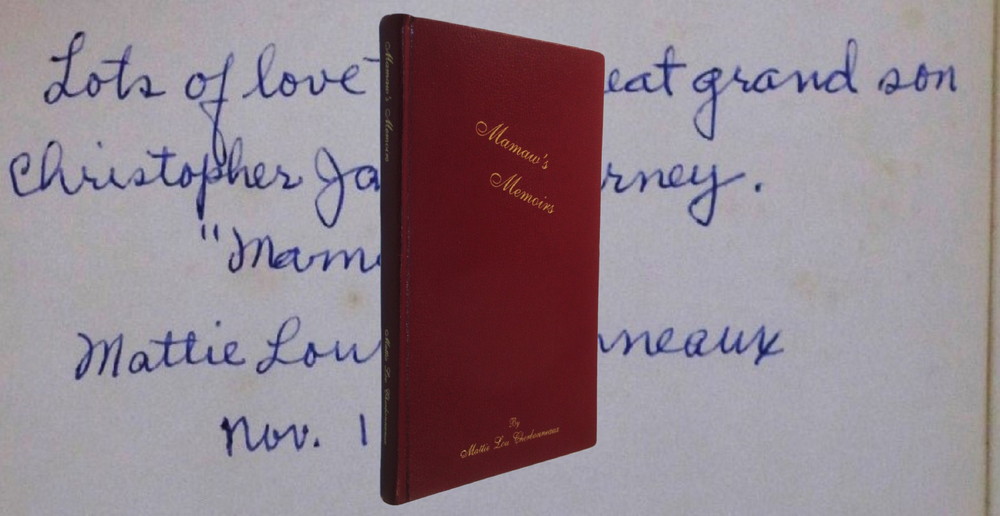 Lots of love eat grand son
Christopher Ja rney.
"Mam
Mattie Lou nneaux
Nov. 1
Mamaw's Memoirs
Mamaw's
Memoirs
By
Mattie Lou Cherbonneaux